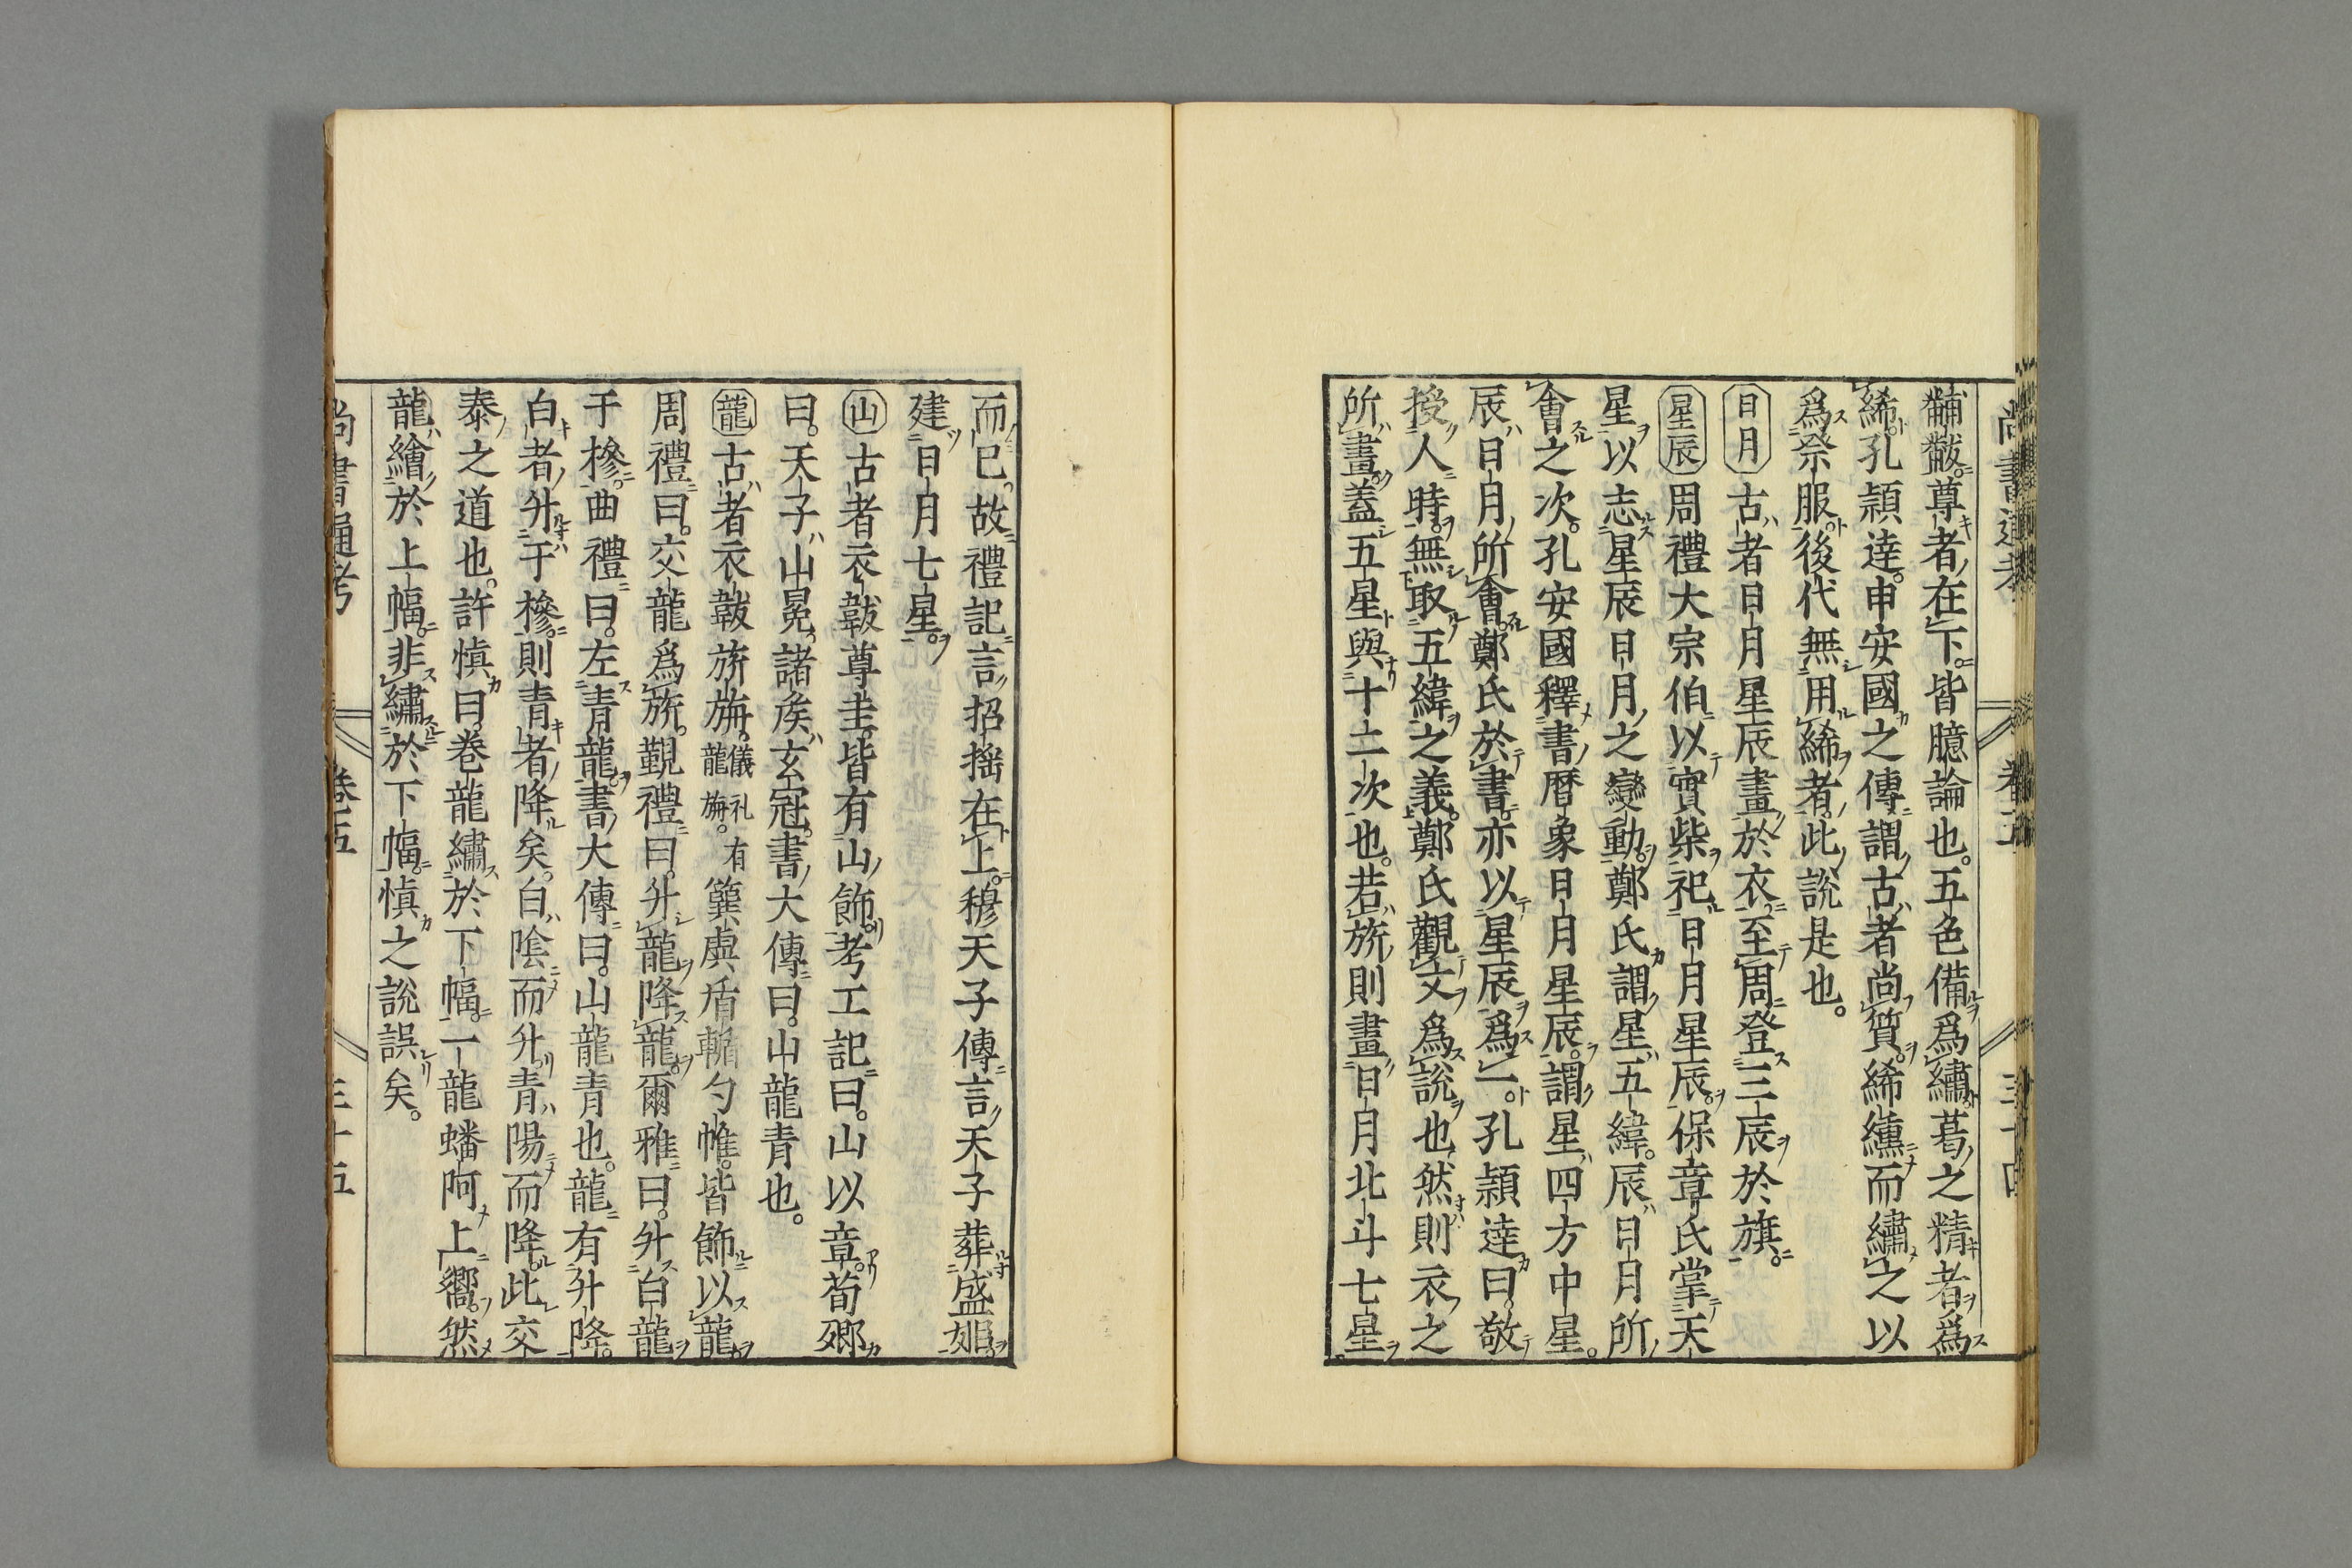 黼黻尊者在下皆臆論也五色備爲繡葛之精者爲
絺孔穎達申安國之傳謂古者尚質絺纁而繡之以
爲祭服後代無用絺者此説是也
日月古者日月星辰畫於衣至周登三辰於旗
星辰周禮大宗伯以實柴祀日月星辰保章氏掌天
星以志星辰日月之變動鄭氏謂星五緯辰日月所
會之次孔安國釋書暦象日月星辰謂星四方中星
辰日月所會鄭氏於書亦以星辰爲一孔穎達曰敬
授人時無取五緯之義鄭氏觀文爲説也然則衣之
所畫蓋五星與十二次也若旂則畫日月北斗七星
而已故禮記言招揺在上穆天子傳言天子葬盛姬
建日月七星
山古者衣韍尊圭皆有山飾考工記曰山以章荀卿
曰天子山冕諸矦玄冠書大傳曰山龍青也
龍古者衣韍旂旜儀礼有龍旜簨虡盾輴勺帷皆飾以龍
周禮曰交龍爲旂覲禮曰升龍降龍爾雅曰升白龍
于縿曲禮曰左青龍書大傳曰山龍青也龍有升降
白者升于縿則青者降矣白隂而升青陽而降此交
泰之道也許慎曰卷龍繡於下幅一龍蟠阿上嚮然
龍繪於上幅非繡於下幅慎之説誤矣
尚書通考 卷五 三十五